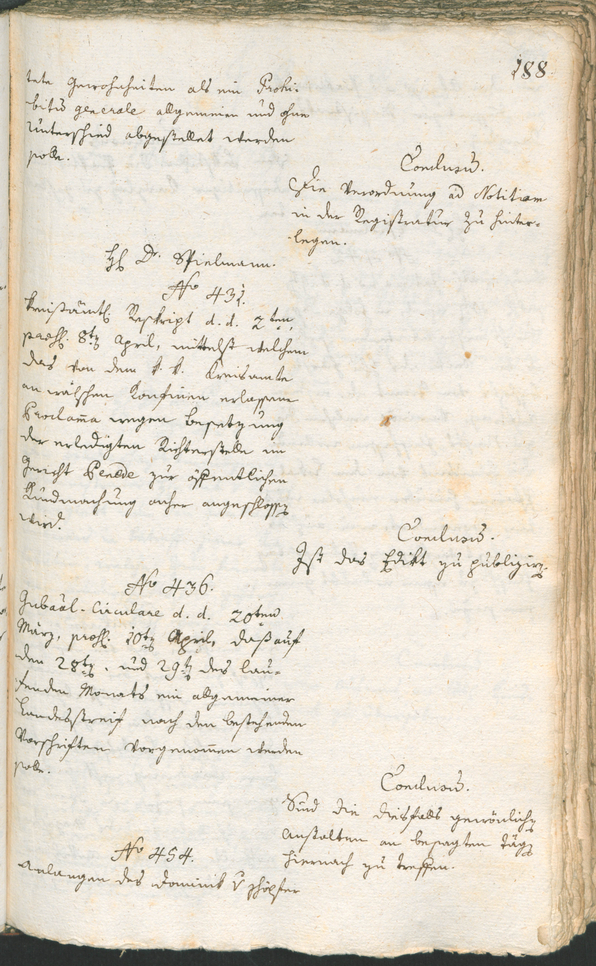 188
tete Gewohnheiten als ein Prohi-
bitum generale allgemein und ohne
Unterschied abgestellet werden
solle.
Conclusum.
Die Verordnung ad Notitiam
in der Registratur zu hinter-
legen.
H. Dr. Spielmann.
No 431.
Kreisämtl. Reskript d. d. 2ten,
praes. 8t April, mittelst welchem
das von dem k. k. Kreisamte
an wälschen Konfinen erlassene
Proclama wegen Besetzung
der erledigten Richterstelle im
Gericht Penede zur öffentlichen
Kundmachung anher angeschlossen
wird.
Conclusum.
Ist das Edikt zu publizirn.
No 436.
Gubäal-Circulare d. d. 20ten
März, praes. 10t April, daß auf
den 28t. und 29t des lau-
fenden Monats ein allgemeiner
Landesstreif nach den bestehenden
Vorschriften vorgenommen werden
solle.
Conclusum.
Sind die diesfalls gewönlichen
Anstalten an besagten Tägen
hiernach zu treffen.
No 454.
Anlangen des Dominik